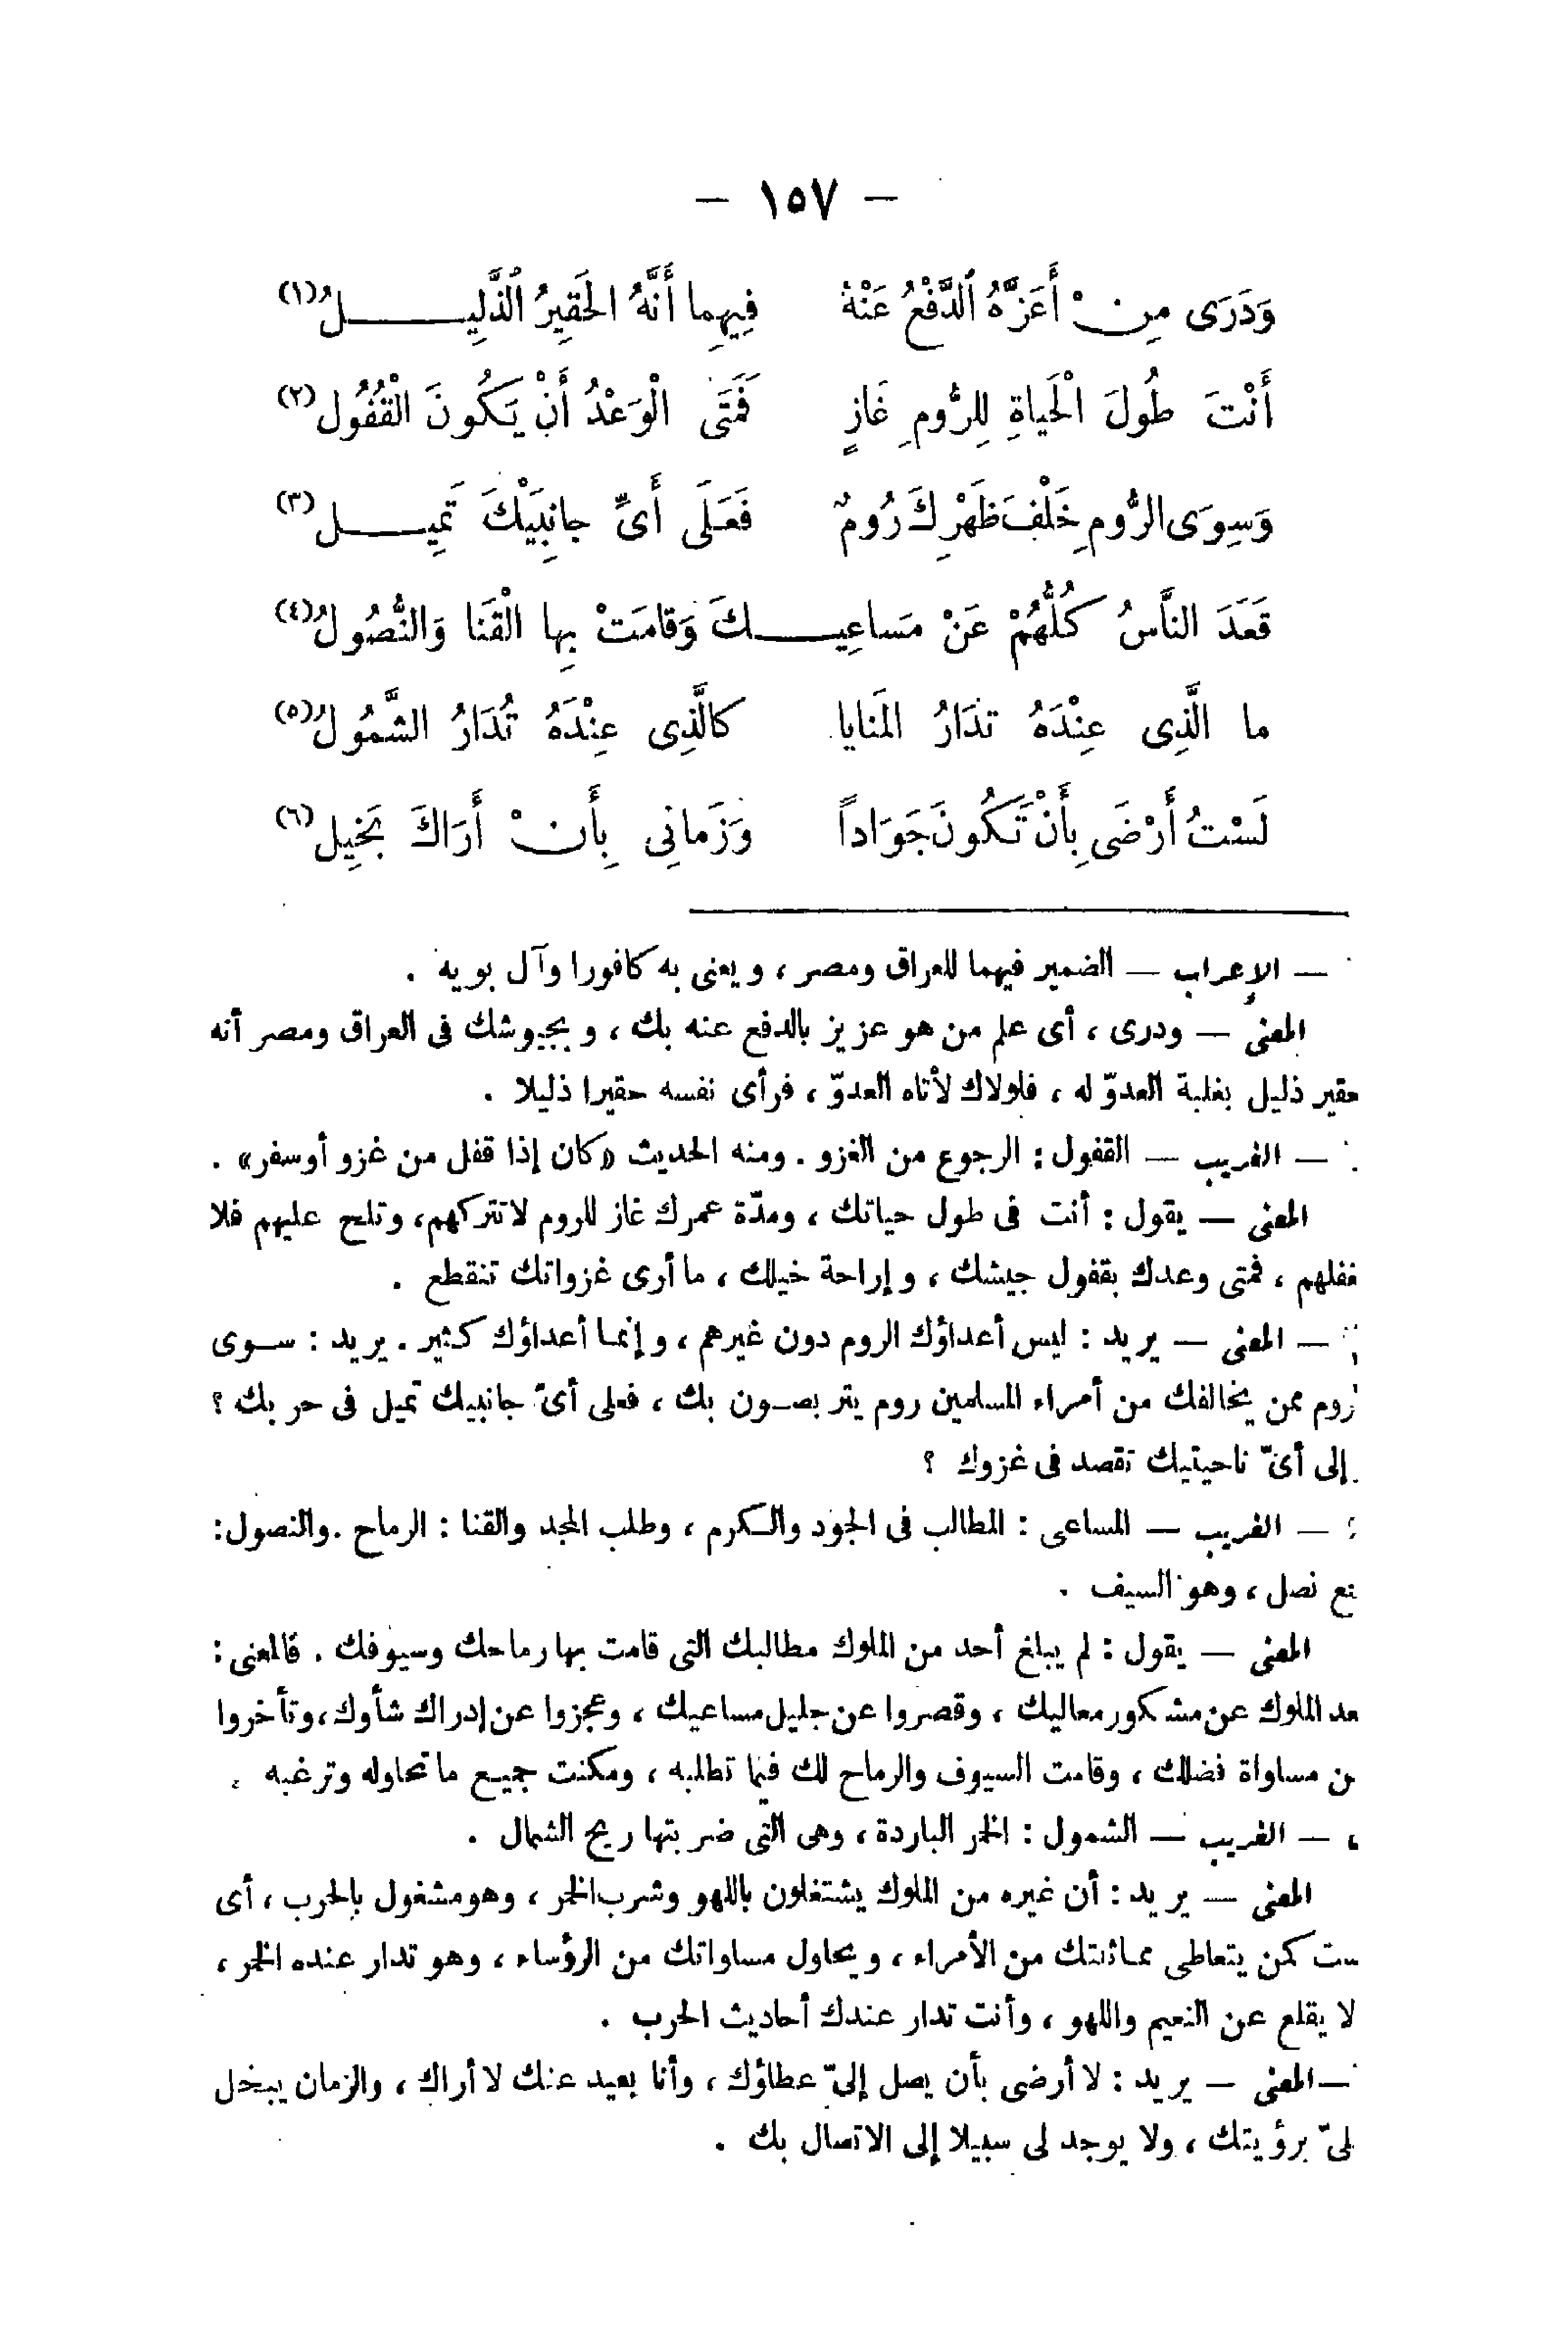 — ١٥٧ —
وَدَرَى مِنْ أَعَزَّهُ ٱلدَّفْعُ عَنْهُ فِيهِما أَنَّهُ الحَقِيرُ ٱلذَّلِيـــــلُ (١)
أَنْتَ طُولَ الْحَياةِ لِلرُّومِ غَازٍ فَمَتَى الْوَعْدُ أَنْ يَكُونَ الْقُفُول (٢)
وَسِوَى الرُّومِ خَلْفَ ظَهْرِكَ رُومٌ فَعَلَى أَىِّ جانِبَيْكَ تَمِيـــــل (٣)
قَعَدَ النَّاسُ كُلُّهُمْ عَنْ مَساعِيـــــكَ وَقامَتْ بِها الْقَنا وَالنُّصُولُ (٤)
ما الَّذِى عِنْدَهُ تدَارُ المَنايا كالَّذِى عِنْدَهُ تُدَارُ الشَّمُولُ (٥)
لَسْتُ أَرْضَى بِأَنْ تَكُونَ جَوَاداً وَزَمانِى بِأَنْ أَرَاكَ بَخِيل (٦)
— الإعراب — الضمير فيهما للعراق ومصر ، ويعنى به كافورا وآل بويه .
المعنى — ودرى ، أى علم من هو عزيز بالدفع عنه بك ، وبجيوشك فى العراق ومصر أنه
حقير ذليل بغلبة العدوّ له ، فلولاك لأتاه العدوّ ، فرأى نفسه حقيرا ذليلا .
— الغريب — القفول : الرجوع من الغزو . ومنه الحديث «كان إذا قفل من غزو أوسفر» .
المعنى — يقول : أنت فى طول حياتك ، ومدّة عمرك غاز للروم لاتتركهم ، وتلح عليهم فلا
غفلهم ، فمتى وعدك بقفول جيشك ، وإراحة خيلك ، ما أرى غزواتك تنقطع .
— المعنى — يريد : ليس أعداؤك الروم دون غيرهم ، وإنما أعداؤك كثير . يريد : سوى
روم ممن يخالفك من أمراء المسلمين روم يتربصون بك ، فعلى أىّ جانبيك تميل فى حربك ؟
إلى أىّ ناحيتيك تقصد فى غزوك ؟
٤ — الغريب — المساعى : المطالب فى الجود والكرم ، وطلب المجد والقنا : الرماح . والنصول :
نصل ، وهو السيف .
المعنى — يقول : لم يبلغ أحد من الملوك مطالبك التى قامت بها رماحك وسيوفك . فالمعنى :
عد الملوك عن مشكور معاليك ، وقصروا عن جليل مساعيك ، وعجزوا عن إدراك شأوك ، وتأخروا
ن مساواة فضلك ، وقامت السيوف والرماح لك فيما تطلبه ، ومكنت جميع ما تحاوله وترغبه .
— الغريب — الشمول : الخمر الباردة ، وهى التى ضربتها ريح الشمال .
المعنى — يريد : أن غيره من الملوك يشتغلون باللهو وشرب الخمر ، وهو مشغول بالحرب ، أى
ست كمن يتعاطى مماثلتك من الأمراء ، ويحاول مساواتك من الرؤساء ، وهو تدار عنده الخمر ،
لا يقلع عن النعيم واللهو ، وأنت تدار عندك أحاديث الحرب .
— المعنى — يريد : لا أرضى بأن يصل إلىّ عطاؤك ، وأنا بعيد عنك لا أراك ، والزمان يبخل
لىّ برؤيتك ، ولا يوجد لى سبيلا إلى الاتصال بك .